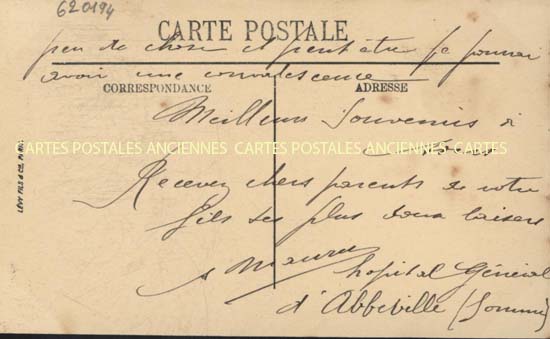 620194
CARTE POSTALE
peu de chose et peut être je pourrai
avoir une convalescence
CORRESPONDANCE
ADRESSE
Meilleurs Souvenirs à
CARTES POSTALES ANCIENNES CARTES POSTALES ANCIENNES CARTES POSTALES ANCIENNES
Recevez chers parents de votre
fils ses plus doux baisers
hopital Général
d'Abbeville (Somme)
LÉVY FILS & Cie, PARIS